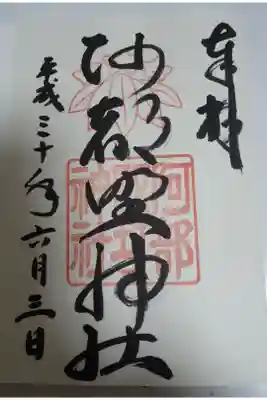 奉拝
阿部野神社
平成三十年六月三日
阿部野神社